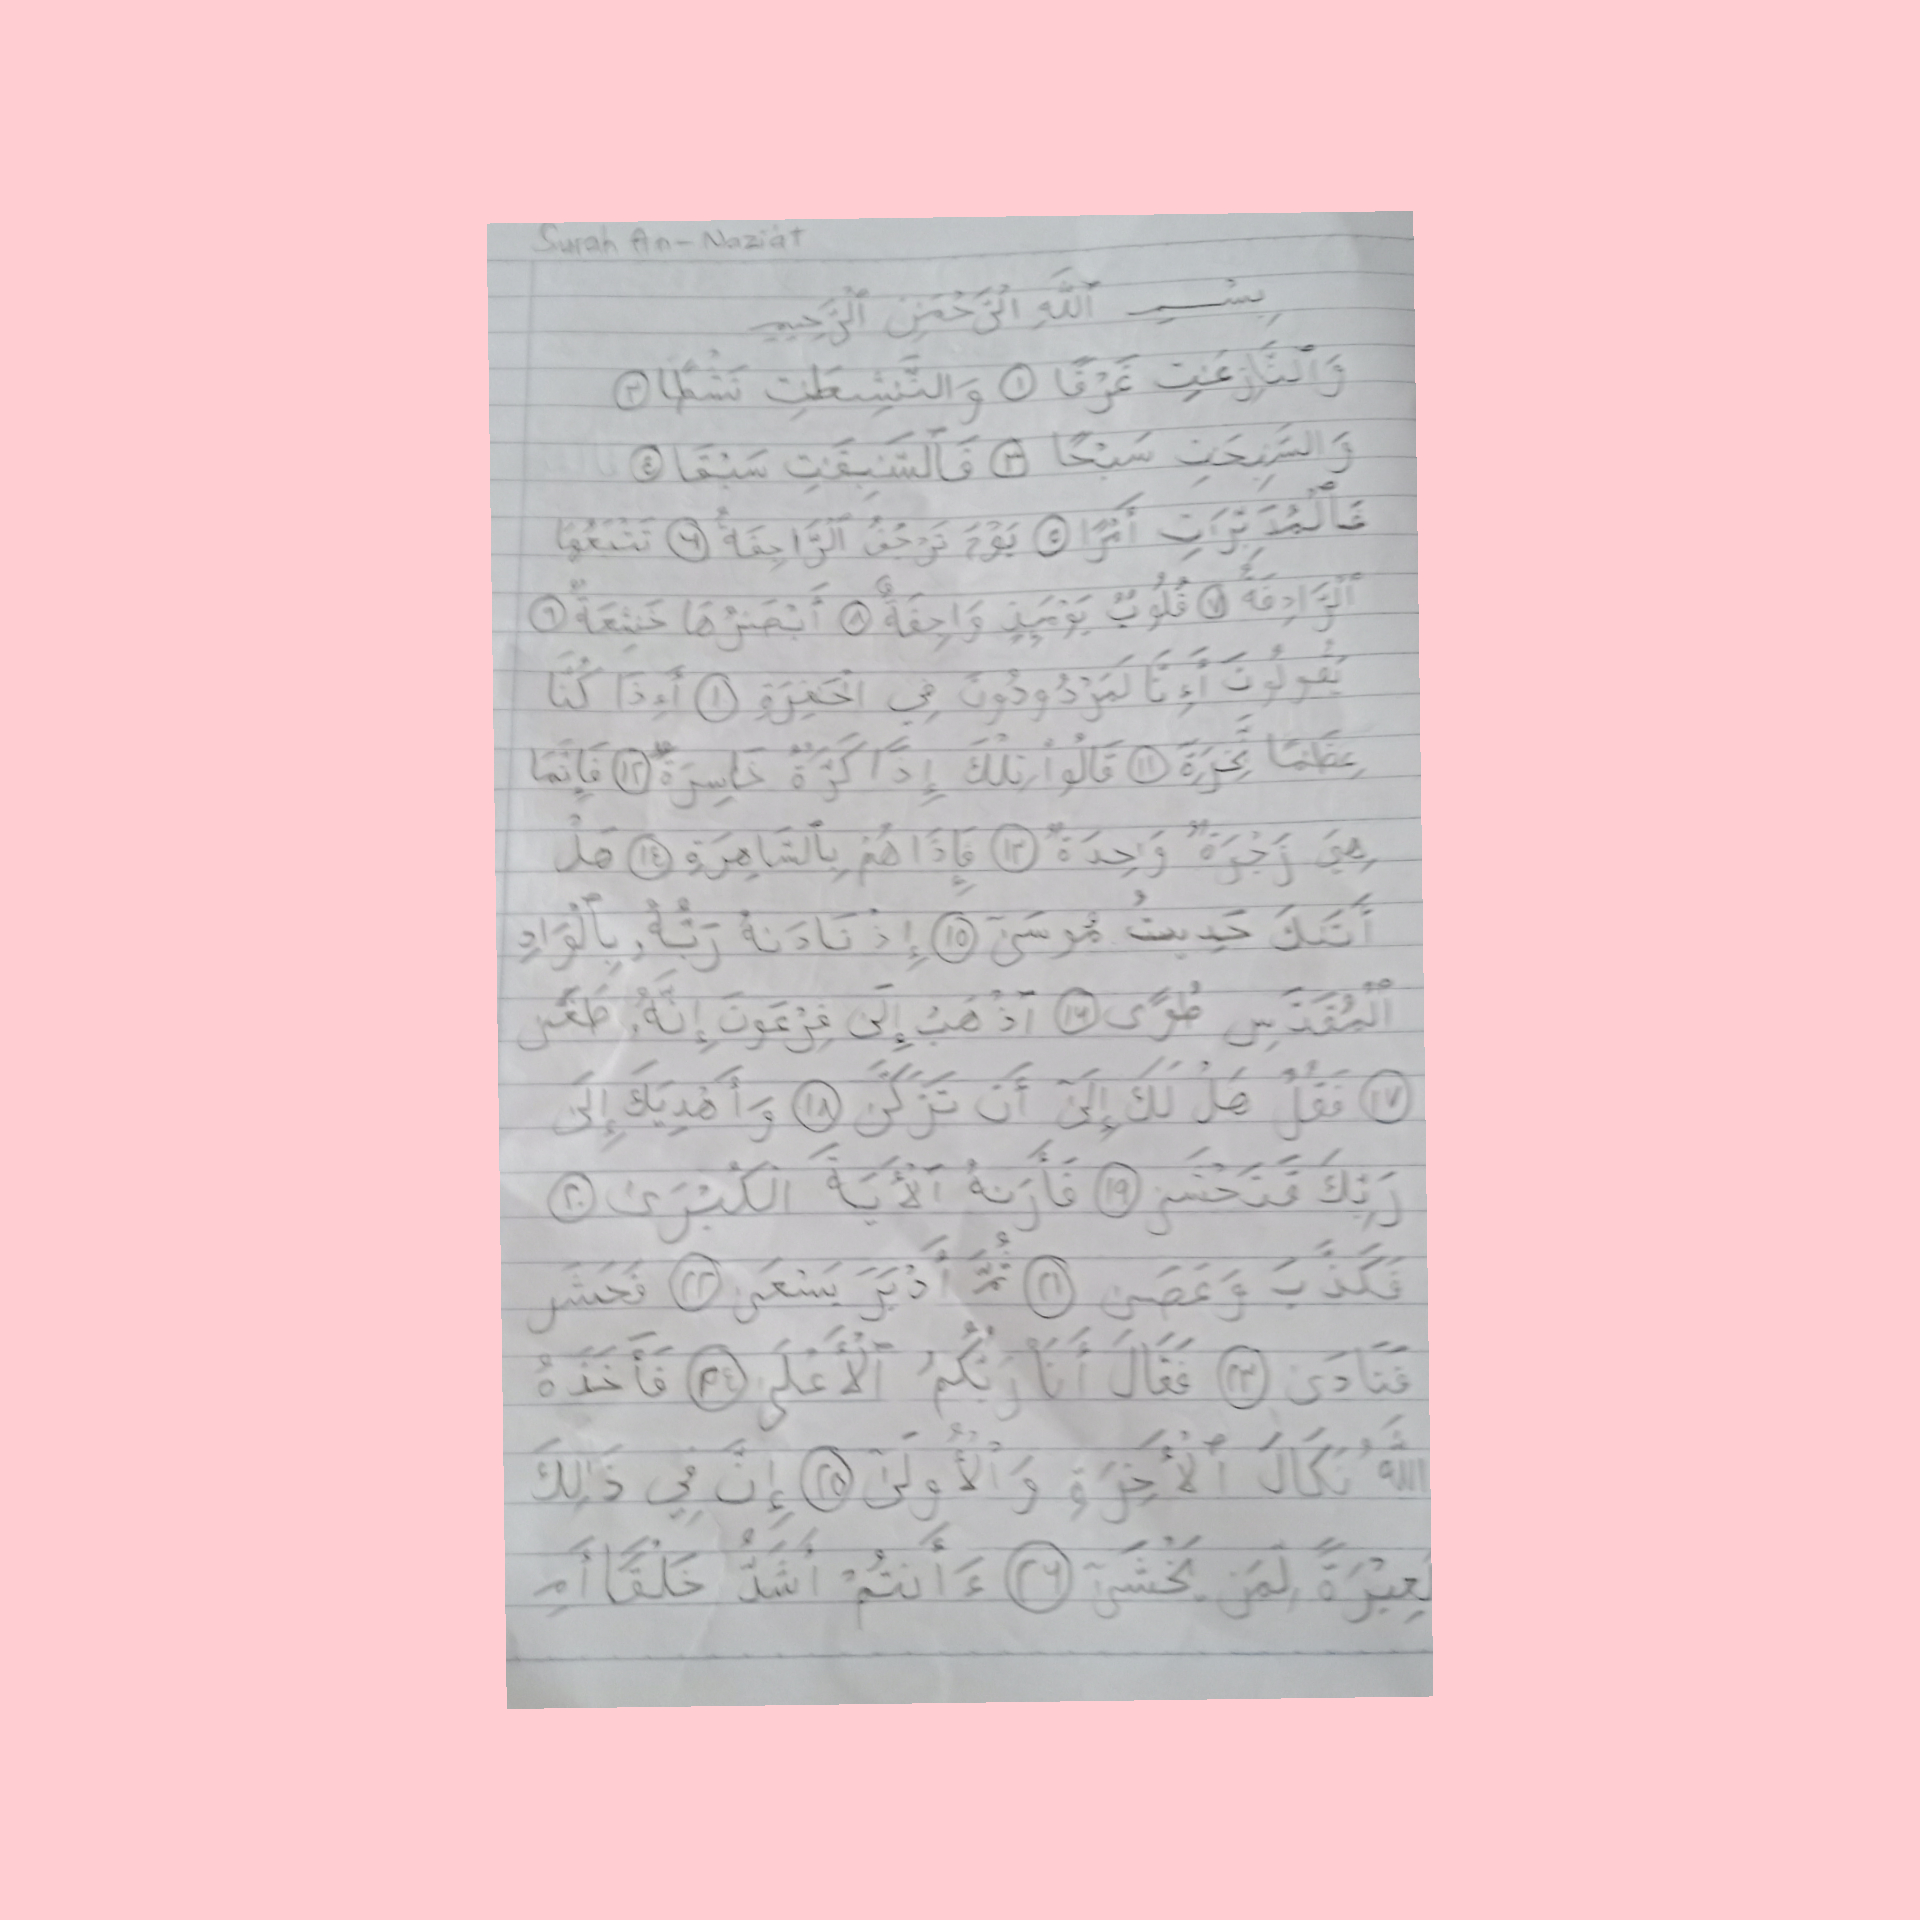 Surah An-Naziat
بِسْمِ ٱللَّهِ الرَّحْمَٰنِ ٱلرَّحِيمِ
وَٱلنَّٰزِعَٰتِ غَرْقًا ١ وَالنَّٰشِطَٰتِ نَشْطًا ٢
وَالسَّٰبِحَٰتِ سَبْحًا ٣ فَٱلسَّٰبِقَٰتِ سَبْقًا ٤
فَٱلْمُدَبِّرَاتِ أَمْرًا ٥ يَوْمَ تَرْجُفُ ٱلرَّاجِفَةُ ٦ تَتْبَعُهَا
ٱلرَّادِفَةُ ٧ قُلُوبٌ يَوْمَئِذٍ وَاجِفَةٌ ٨ أَبْصَٰرُهَا خَٰشِعَةٌ ٩
يَقُولُونَ أَءِنَّا لَمَرْدُودُونَ فِي الْحَافِرَةِ ١٠ أَءِذَا كُنَّا
عِظَٰمًا نَّخِرَةً ١١ قَالُوا۟ تِلْكَ إِذًا كَرَّةٌ خَاسِرَةٌ ١٢ فَإِنَّمَا
هِيَ زَجْرَةٌ وَٰحِدَةٌ ١٣ فَإِذَا هُم بِٱلسَّاهِرَةِ ١٤ هَلْ
أَتَىٰكَ حَدِيثُ مُوسَىٰٓ ١٥ إِذْ نَادَىٰهُ رَبُّهُۥ بِٱلْوَادِ
ٱلْمُقَدَّسِ طُوًى ١٦ ٱذْهَبْ إِلَىٰ فِرْعَوْنَ إِنَّهُۥ طَغَىٰ
١٧ فَقُلْ هَلْ لَكَ إِلَىٰٓ أَن تَزَكَّىٰ ١٨ وَأَهْدِيَكَ إِلَىٰ
رَبِّكَ فَتَخْشَىٰ ١٩ فَأَرَىٰهُ ٱلْأَيَةَ الْكُبْرَىٰ ٢٠
فَكَذَّبَ وَعَصَىٰ ٢١ ثُمَّ أَدْبَرَ يَسْعَىٰ ٢٢ فَحَشَرَ
فَنَادَىٰ ٢٣ فَقَالَ أَنَا۠ رَبُّكُمُ ٱلْأَعْلَىٰ ٢٤ فَأَخَذَهُ
اللَّهُ نَكَالَ ٱلْأَخِرَةِ وَٱلْأُولَىٰٓ ٢٥ إِنَّ فِي ذَٰلِكَ
لَعِبْرَةً لِّمَن يَخْشَىٰٓ ٢٦ ءَأَنتُمْ أَشَدُّ خَلْقًا أَمِ